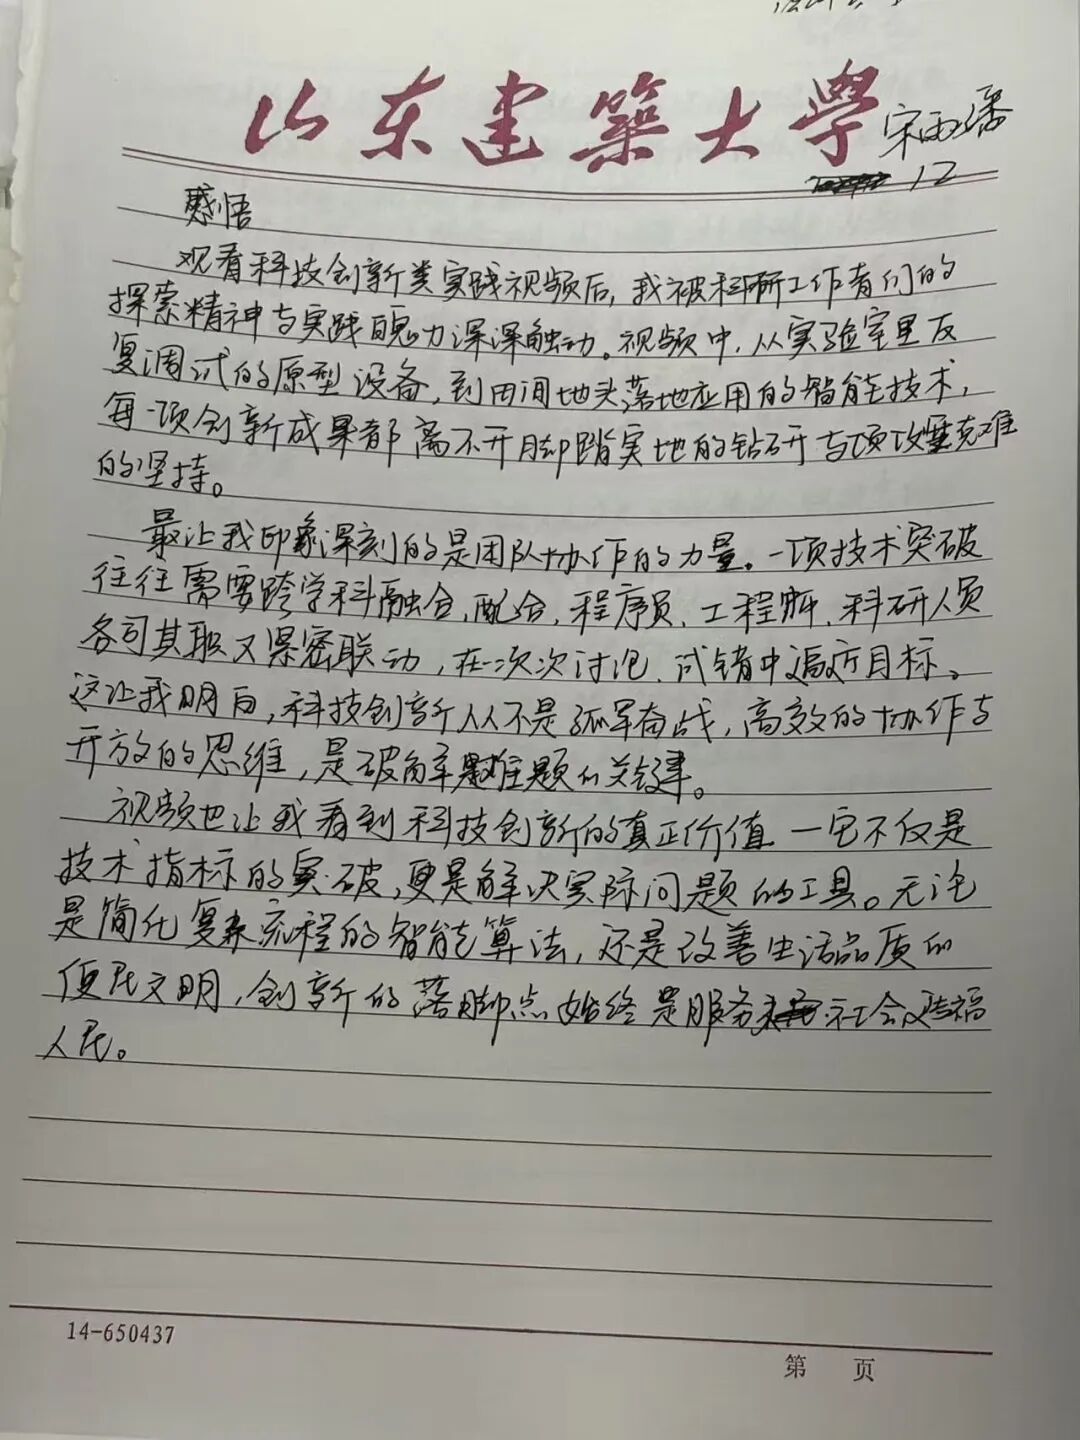 山东建筑大学
宋雨潘
12
感悟
观看科技创新类实践视频后,我被科研工作者们的
探索精神与实践魄力深深触动。视频中,从实验室里反
复调试的原型设备,到田间地头落地应用的智能技术,
每一项创新成果都离不开脚踏实地的钻研与顷攻坚克难
的坚持。
最让我印象深刻的是团队协作的力量。一项技术突破
往往需要跨学科融合,配合,程序员、工程师、科研人员
各司其职又紧密联动,在一次次讨论、试错中逼近目标。
这让我明白,科技创新从不是孤军奋战,高效的协作与
开放的思维,是破解难题的关键。
视频也让我看到科技创新的真正价值一它不仅是
技术指标的突破,更是解决实际问题的工具。无论
是简化复杂流程的智能算法,还是改善生活品质的
便民文明,创新的落脚点始终是服务社会造福
人民。
14-650437
第 页